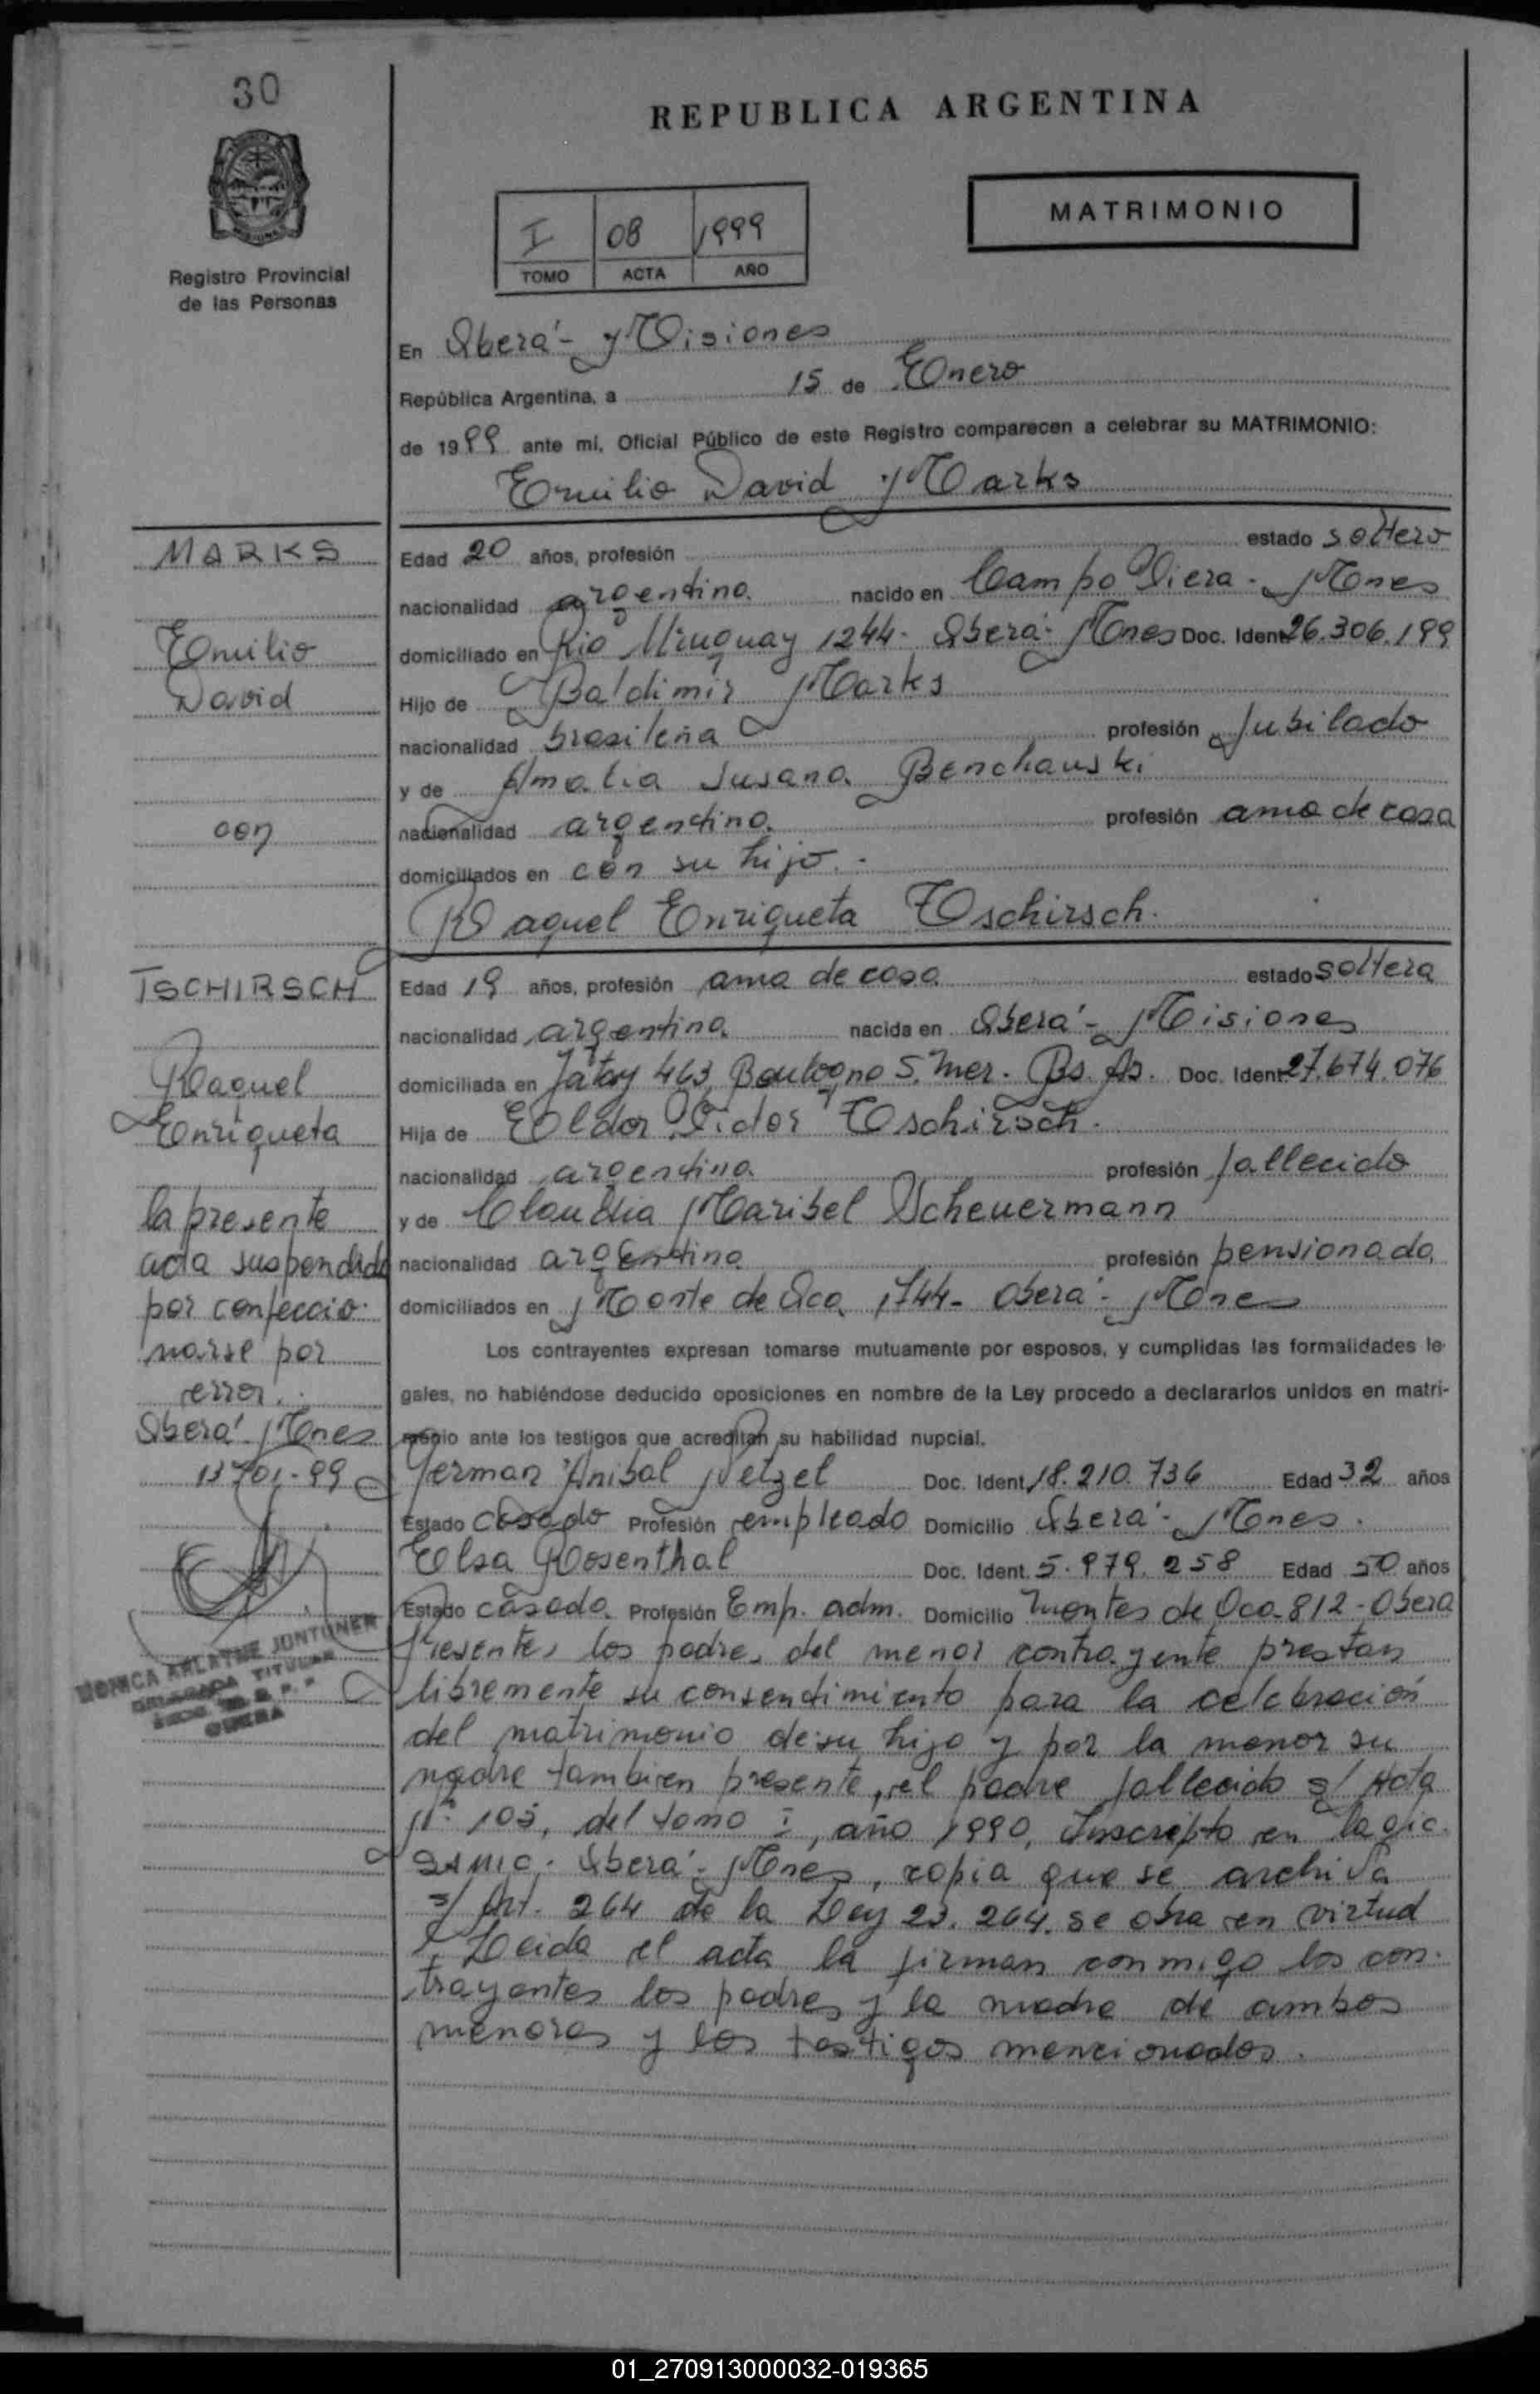 30
REPUBLICA ARGENTINA
Registro Provincial
de las Personas
I 08 1999
TOMO ACTA AÑO
MATRIMONIO
En Oberá - Misiones
República Argentina, a 15 de Enero
de 1999 ante mi, Oficial Público de este Registro comparecen a celebrar su MATRIMONIO:
Emilio David Marks
MARKS
Emilio
David
con
Edad 20 años, profesión estado soltero
nacionalidad argentina nacido en Campo Viera - Mnes
domiciliado en Rio Uruguay 1244 - Oberá - Mnes Doc. Ident. 26.306.199
Hijo de Baldimir Marks
nacionalidad brasileña profesión Jubilado
y de Amalia Susana Benchauski
nacionalidad argentina profesión ama de casa
domiciliados en con su hijo. -
Raquel Enriqueta Tschirsch.
TSCHIRSCH
Raquel
Enriqueta
Edad 19 años, profesión ama de casa estado soltera
nacionalidad argentina nacida en Oberá - Misiones
domiciliada en Jatay 463, Boulogne S. Mer. Bs. As. Doc. Ident. 27.674.076
Hija de Eldor Tschirsch.
nacionalidad argentina profesión fallecido
y de Claudia Maribel Scheuermann
nacionalidad argentina profesión pensionada
domiciliados en Monte de Oca 1744 - Oberá - Mnes
la presente
acta suspendida
por confeccio-
narse por
error.
Oberá Mnes
-01-99
MONICA ARLAYNE JONTUNER
DELEGADA TITULAR
OBERA
Los contrayentes expresan tomarse mutuamente por esposos, y cumplidas las formalidades le-
gales, no habiéndose deducido oposiciones en nombre de la Ley procedo a declararlos unidos en matri-
monio ante los testigos que acreditan su habilidad nupcial.
German Anibal Netzel Doc. Ident. 18.210.736 Edad 32 años
Estado casado Profesión empleado Domicilio Oberá - Mnes.
Elsa Rosenthal Doc. Ident. 5.979.258 Edad 50 años
Estado casada Profesión Emp. adm. Domicilio Montes de Oca 812 - Oberá
Presentes los padres del menor contrayente prestan
libremente su consentimiento para la celebración
del matrimonio de su hijo y por la menor su
madre tambien presente, el padre fallecido s/ Acta
Nº 103, del tomo I, año 1990, Inscripto en la
Oberá - Mnes, copia que se archiva
s/ Art. 264 de la Ley 23.264. se obra en virtud
Leida el acta la firman conmigo los con-
trayentes los padres y la madre de ambos
menores y los testigos mencionados.
01_270913000032-019365